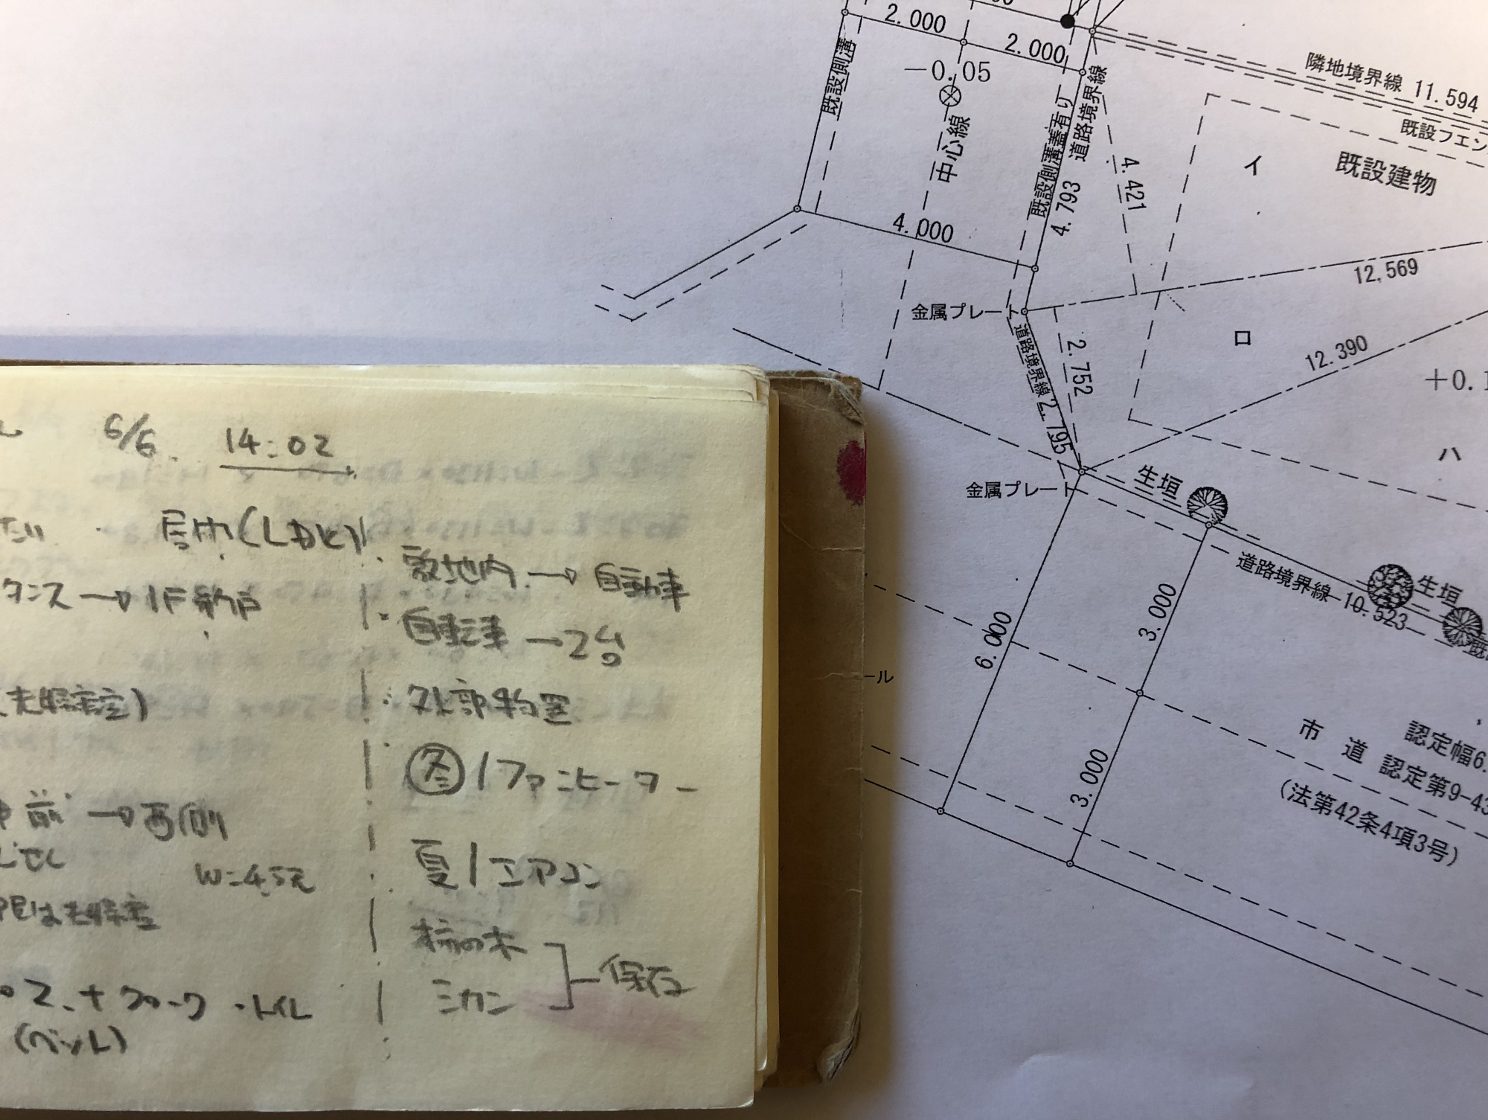 2.000
2.000
-0.05
既設側溝
中心線
既設側溝蓋有り
道路境界線
4.793
4.421
隣地境界線 11.594
既設フェン
イ
既設建物
4.000
12,569
金属プレート
ロ
12.390
道路境界線 2.795
2.752
+0.1
ハ
金属プレート
生垣
道路境界線 10.523
生垣
6.000
3.000
3.000
ール
市道
認定幅6.
認定第9-43
(法第42条4項3号)
6/6. 14:02
居間(LDK)
タンス → 1F納戸
(夫婦寝室)
前 → 西側
W=4.5
夫婦寝室
+クローク ・トイレ
(ベット)
敷地内 → 自動車
自転車 → 2台
外部物置
冬/ファンヒーター
夏/エアコン
柿の木
ミカン
保存